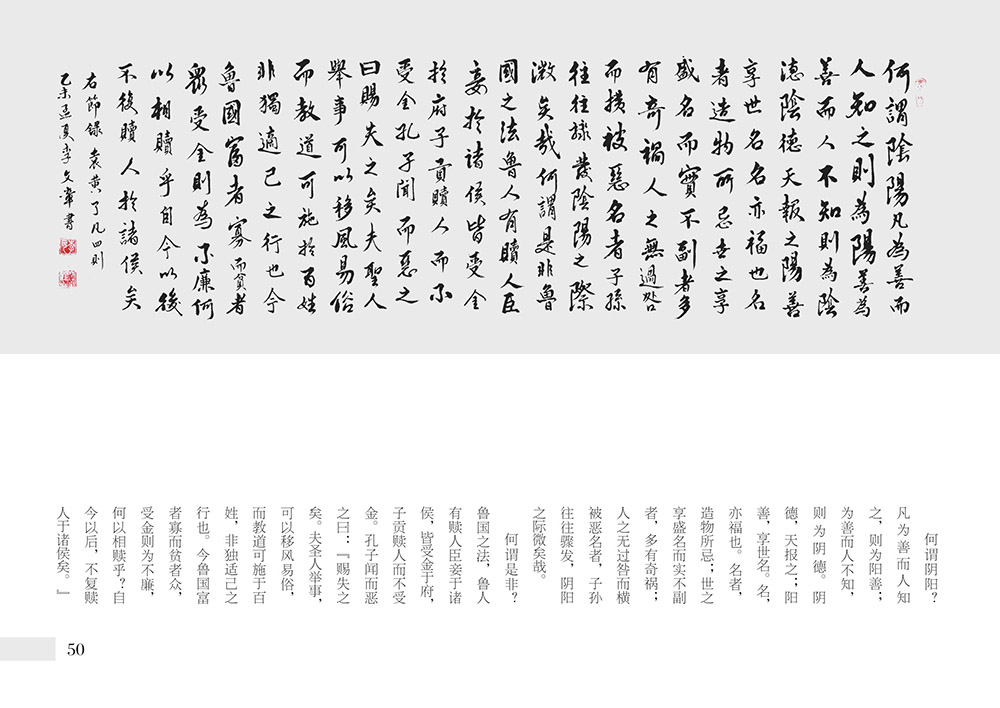 何謂陰陽凡為善而
人知之則為陽善為
善而人不知則為陰
德陰德天報之陽善
享世名名亦福也名
者造物所忌世之享
盛名而實不副者多
有奇禍人之無過咎
而横被惡名者子孫
往往驟發陰陽之際
微矣哉何謂是非魯
國之法魯人有贖人臣
妾於諸侯皆受金
於府子貢贖人而不
受金孔子聞而惡之
曰賜失之矣夫聖人
舉事可以移風易俗
而教道可施於百姓
非獨適己之行也今
魯國富者寡而貧者
眾受金則為不廉何
以相贖乎自今以後
不復贖人於諸侯矣
右節録袁黄了凡四則
乙未孟夏李文章書
何谓阴阳？
凡为善而人知
之，则为阳善；
为善而人不知，
则为阴德。阴
德，天报之；阳
善，享世名。名，
亦福也。名者，
造物所忌；世之
享盛名而实不副
者，多有奇祸；
人之无过咎而横
被恶名者，子孙
往往骤发，阴阳
之际微矣哉。
何谓是非？
鲁国之法，鲁人
有赎人臣妾于诸
侯，皆受金于府，
子贡赎人而不受
金。孔子闻而恶
之曰：『赐失之
矣。夫圣人举事，
可以移风易俗，
而教道可施于百
姓，非独适己之
行也。今鲁国富
者寡而贫者众，
受金则为不廉，
何以相赎乎？自
今以后，不复赎
人于诸侯矣。』
50